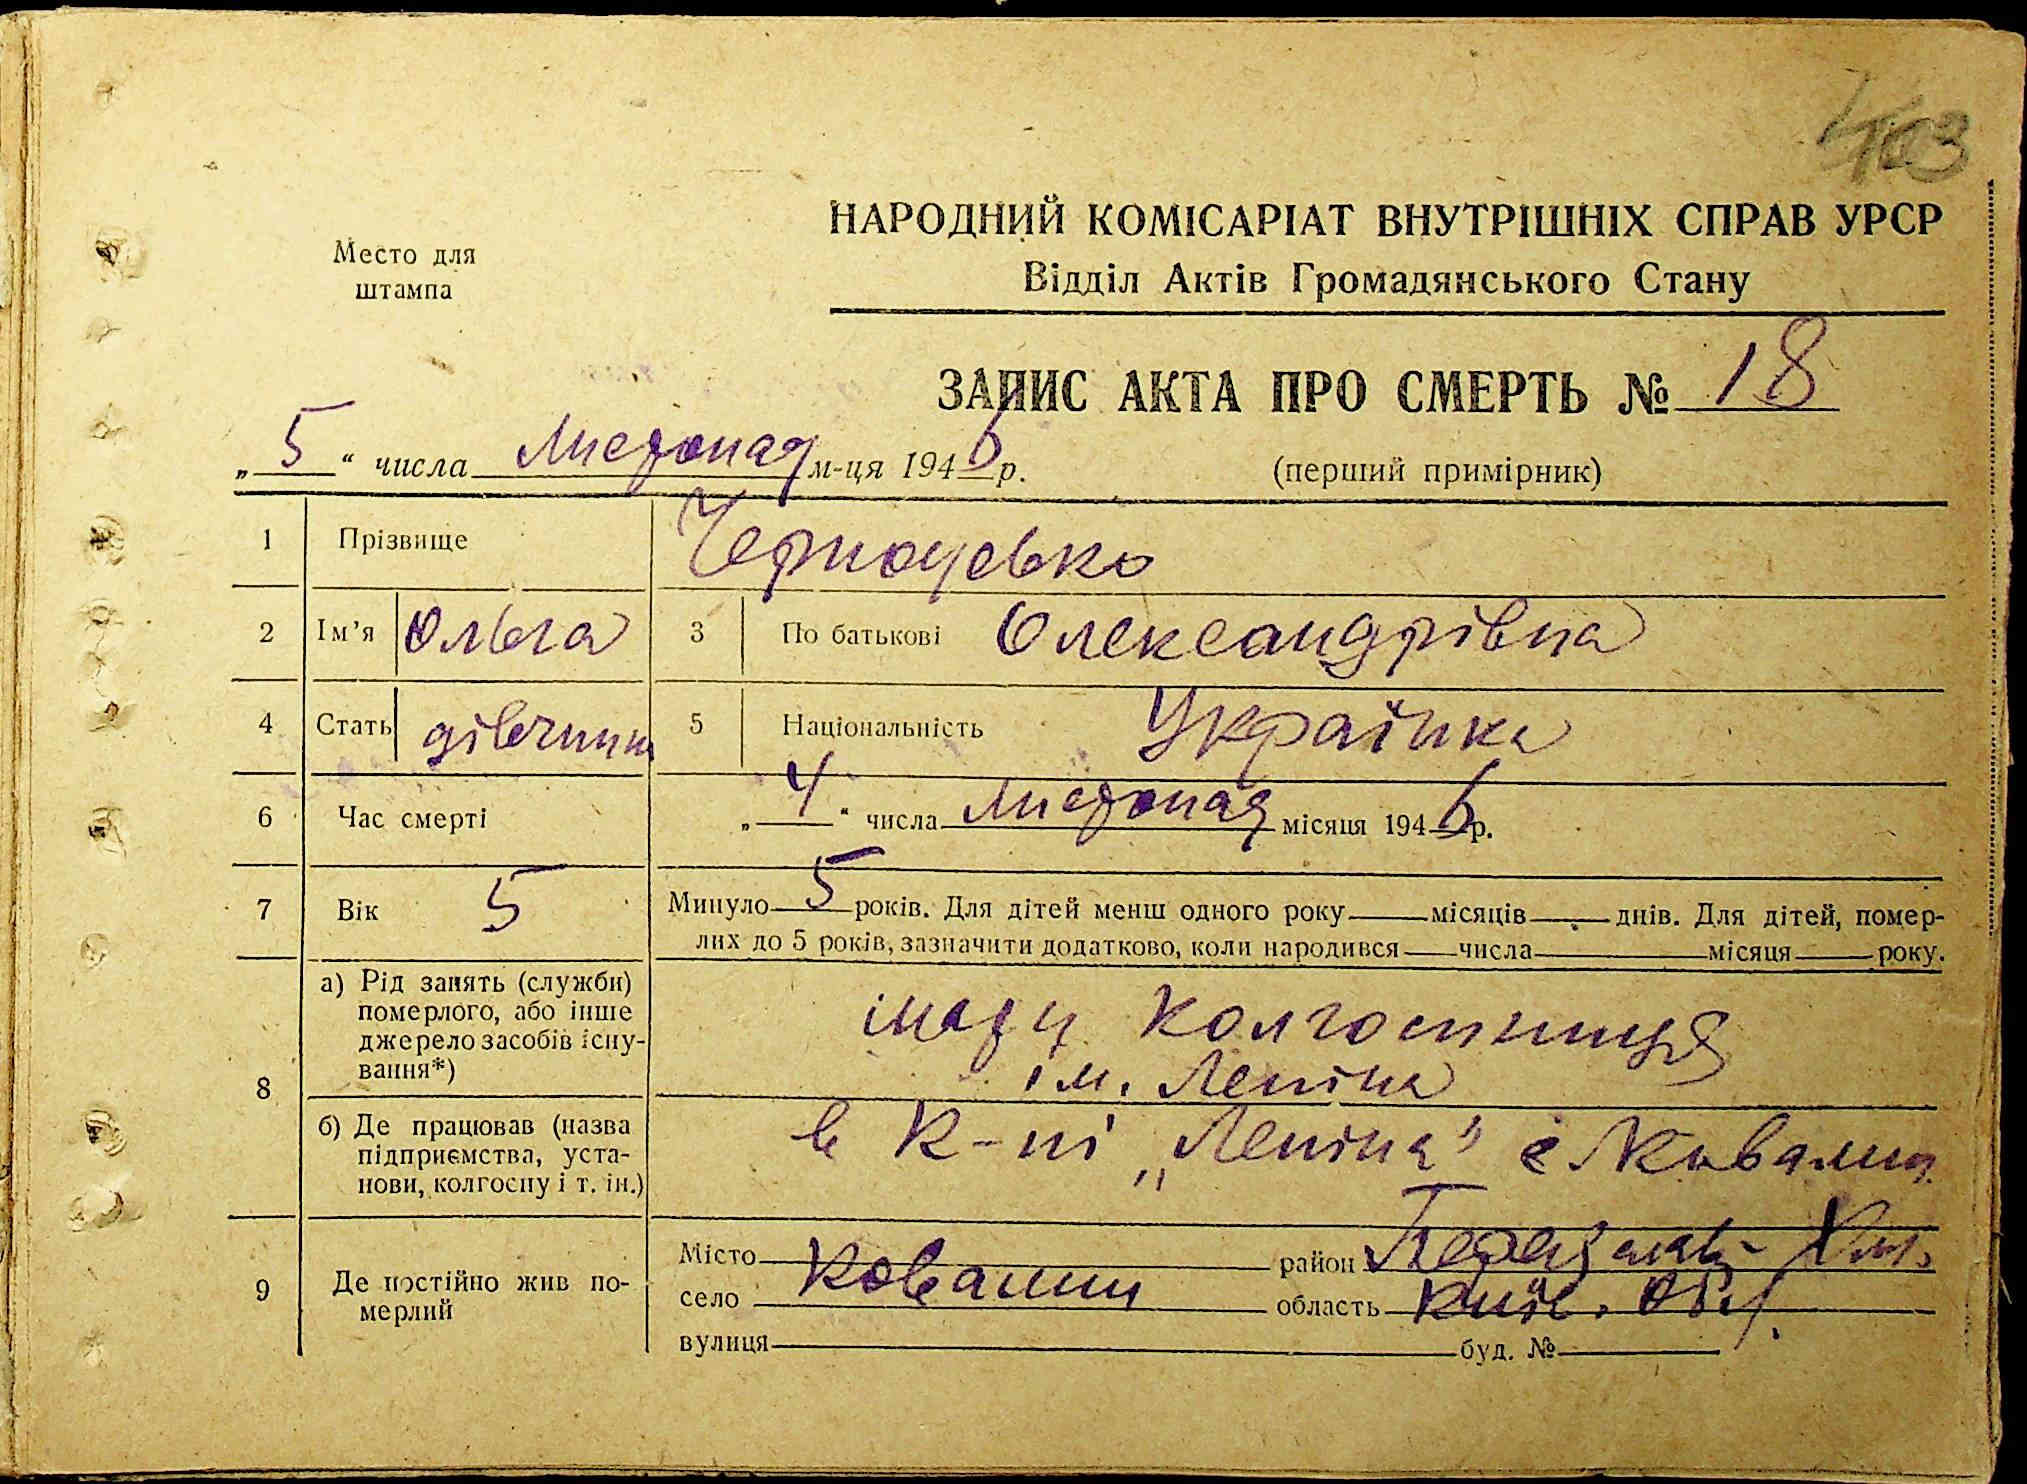 403
НАРОДНИЙ КОМІСАРІАТ ВНУТРІШНІХ СПРАВ УРСР
Место для
штампа
Відділ Актів Громадянського Стану
ЗАПИС АКТА ПРО СМЕРТЬ № 18
„ 5 “ числа листопад м-ця 194 6 р. (перший примірник)
1 Прізвище Черноусько
2 Ім’я Ольга 3 По батькові Олександрівна
4 Стать дівчина 5 Національність Українка
6 Час смерті „ 4 “ числа листопад місяця 194 6 р.
7 Вік 5 Минуло 5 років. Для дітей менш одного року місяців днів. Для дітей, помер-
лих до 5 років, зазначити додатково, коли народився числа місяця року.
8 а) Рід занять (служби)
померлого, або інше
джерело засобів існу-
вання*)
мати колгоспниця
ім. Леніна
б) Де працював (назва
підприємства, уста-
нови, колгоспу і т. ін.)
в к-пі „Леніна" с. Ковалин
9 Де постійно жив по-
мерлий
Місто район Переяслав-Хм.
село Ковалин область Київ. обл.
вулиця буд. №